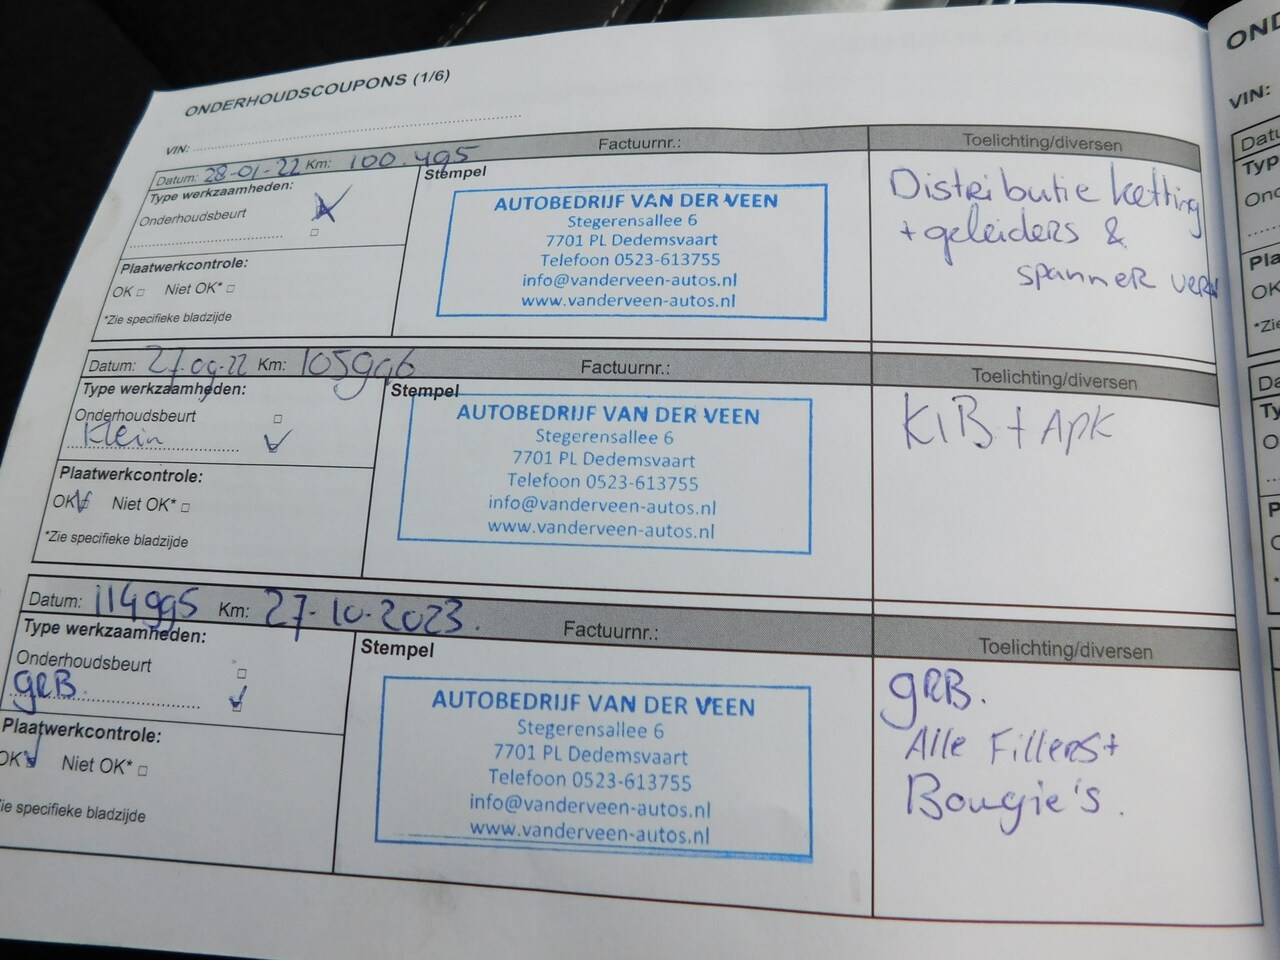 ONDERHOUDSCOUPONS (1/6)
VIN:
Datum: 28-01-22 Km: 100.495 Factuurnr.: Toelichting/diversen
Type werkzaamheden:
Onderhoudsbeurt
Plaatwerkcontrole:
OK Niet OK*
*Zie specifieke bladzijde
Stempel
AUTOBEDRIJF VAN DER VEEN
Stegerensallee 6
7701 PL Dedemsvaart
Telefoon 0523-613755
info@vanderveen-autos.nl
www.vanderveen-autos.nl
Distributie ketting
+ geleiders &
spanner
Datum: 27-09-22 Km: 105996 Factuurnr.: Toelichting/diversen
Type werkzaamheden:
Onderhoudsbeurt
Klein
Plaatwerkcontrole:
OK Niet OK*
*Zie specifieke bladzijde
Stempel
AUTOBEDRIJF VAN DER VEEN
Stegerensallee 6
7701 PL Dedemsvaart
Telefoon 0523-613755
info@vanderveen-autos.nl
www.vanderveen-autos.nl
KlB + APK
Datum: 114995 Km: 27-10-2023. Factuurnr.: Toelichting/diversen
Type werkzaamheden:
Onderhoudsbeurt
GRB.
Plaatwerkcontrole:
OK Niet OK*
Zie specifieke bladzijde
Stempel
AUTOBEDRIJF VAN DER VEEN
Stegerensallee 6
7701 PL Dedemsvaart
Telefoon 0523-613755
info@vanderveen-autos.nl
www.vanderveen-autos.nl
GRB.
Alle Filters +
Bougie's.
VIN: